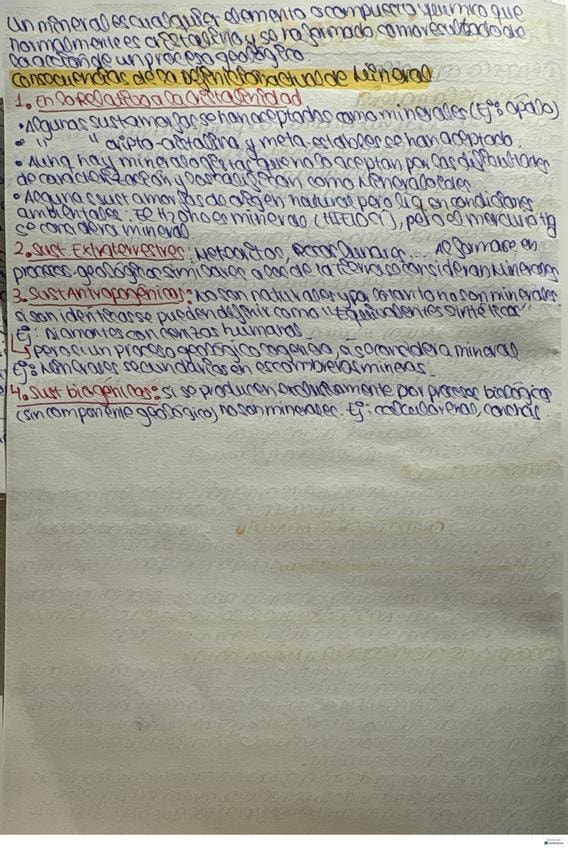 Un mineral es cualquier elemento o compuesto químico que
normalmente es cristalino y se ha formado como resultado de
la acción de un proceso geológico.
Consecuencias de la definición actual de Mineral
1. En lo Relativo a la Cristalinidad
• Algunas sust amorfas se han aceptado como minerales (Ej: ópalo)
• " " cripto-cristalina y meta estables se han aceptado.
• Aunq hay mineralogistas que no lo aceptan por las dificultades
de caracterización y los tratan como Mineraloides.
• Alguna sust amorfas de origen natural pero líq en condiciones
ambientales: El H2O no es mineral (HIELO SI), pero el mercurio Hg
se considera mineral
2. Sust Extraterrestres: Meteoritos, rocas lunares... Al formarse en
procesos geológicos similares a los de la tierra se consideran Minerales
3. Sust Antropogénicas: No son naturales y por lo tanto no son minerales
si son identicas se pueden definir como "Equivalentes sintéticos"
Ej: Diamantes con cenizas humanas.
↳ pero si un proceso geológico lo genera, si se considera mineral
Ej: Minerales secundarios en escombreras mineras.
4. Sust biogénicas: si se producen exclusivamente por procesos biológicos
(sin componente geológico) no son minerales. Ej: cálculo renal, conchas